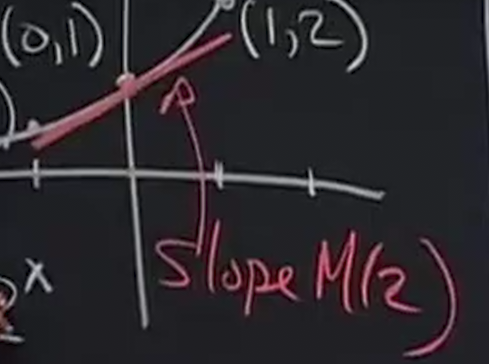 (0,1)
(1,2)
)
x
Slope M(2)